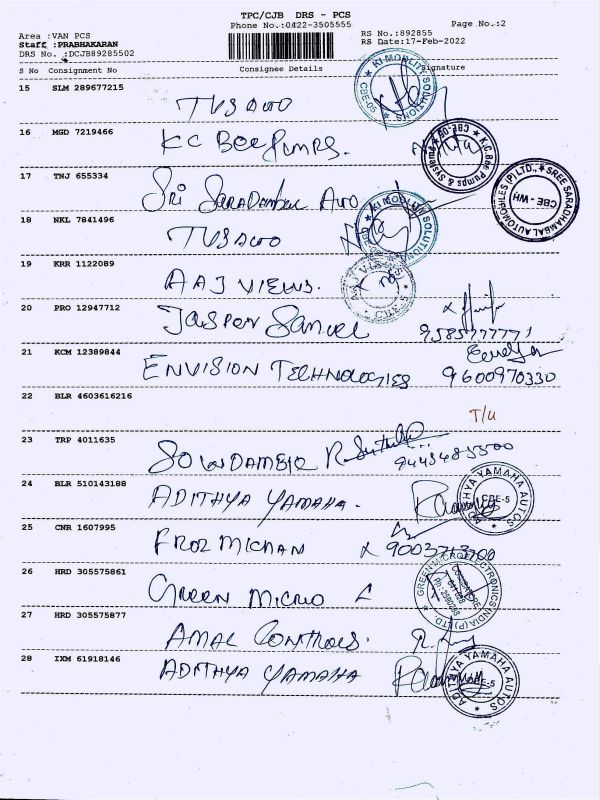 TPC/CJB DRS - PCS
Phone No.:0422-3505555
Page No.:2
Area :VAN PCS
Staff :PRABHAKARAN
DRS No. :DCJB89285502
RS No.:892855
RS Date:17-Feb-2022
S No Consignment No Consignee Details Signature
15 SLM 289677215
KI MOBILITY SOLUTIONS
CBE-05
16 MGD 7219466
KC Bee Pumps.
K.C. Bee Pumps & Systems CBE-05
17 TNJ 655334
Sri Saradambal Auto
SREE SARADHAMBAL AUTOMOBILES (P) LTD.,
CBE - WH
18 NKL 7841496
KI MOBILITY SOLUTION
19 KRR 1122089
AAJ VIEWS.
AAJ VIEWS
CBE-5
20 PRO 12947712
Jasper Samuel
21 KCM 12389844
ENVISION TECHNOLOGIES
9600970330
22 BLR 4603616216
23 TRP 4011635
24 BLR 510143188
ADITHYA YAMAHA.
ADITHYA YAMAHA AUTOS
CBE-5
25 CNR 1607995
26 HRD 305575861
Green Micro
GREEN MICROELECTRONICS INDIA (P) LTD
27 HRD 305575877
AMAL CONTROLS.
28 IXM 61918146
ADITHYA YAMAHA
ADITHYA YAMAHA AUTOS
CBE-5